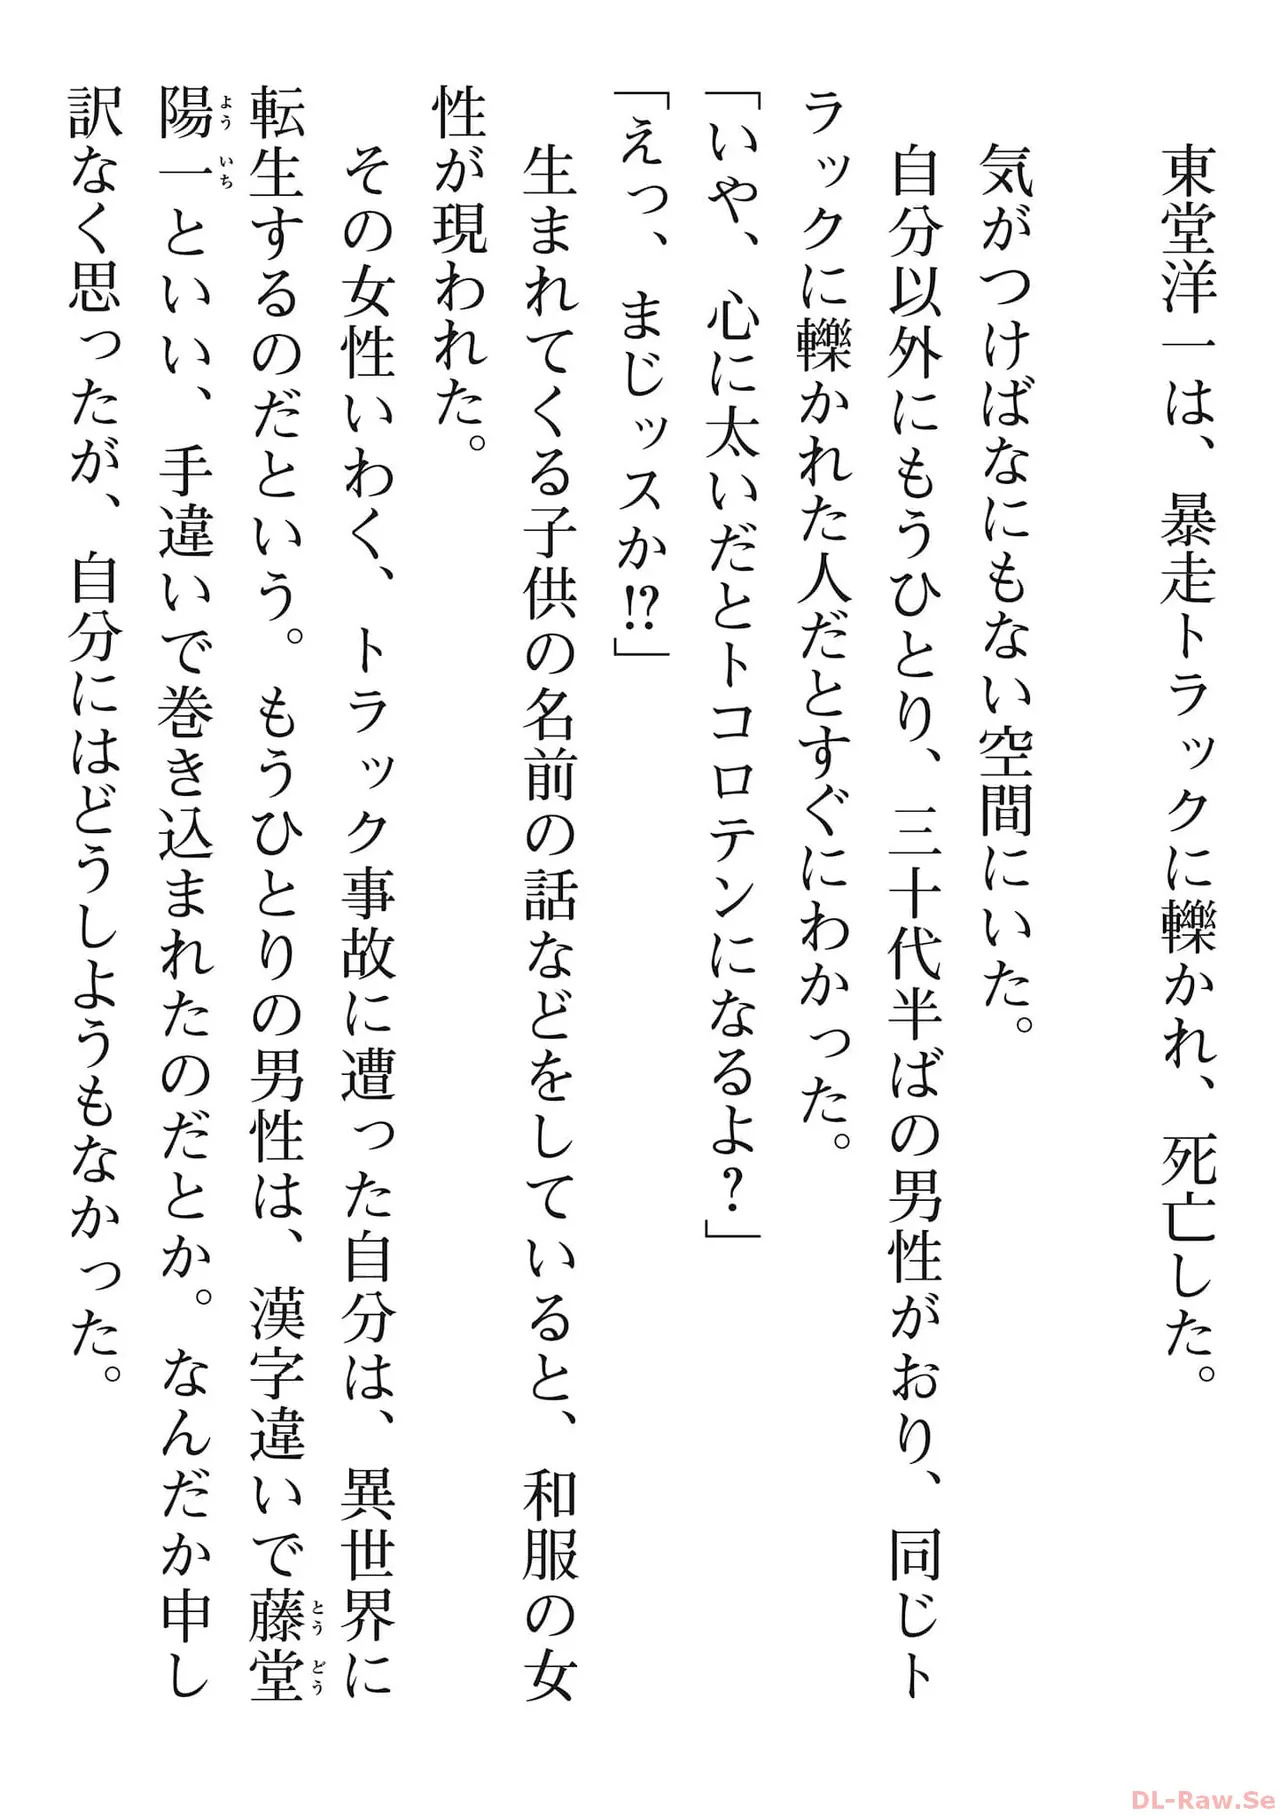 東堂洋一は、暴走トラックに轢かれ、死亡した。
気がつけばなにもない空間にいた。
自分以外にもうひとり、三十代半ばの男性がおり、同じト
ラックに轢かれた人だとすぐにわかった。
「いや、心に太いだとトコロテンになるよ？」
「えっ、まじッスか!?」
生まれてくる子供の名前の話などをしていると、和服の女
性が現われた。
その女性いわく、トラック事故に遭った自分は、異世界に
転生するのだという。もうひとりの男性は、漢字違いで藤堂
とうどう
陽一といい、手違いで巻き込まれたのだとか。なんだか申し
よういち
訳なく思ったが、自分にはどうしようもなかった。
DL-Raw.Se